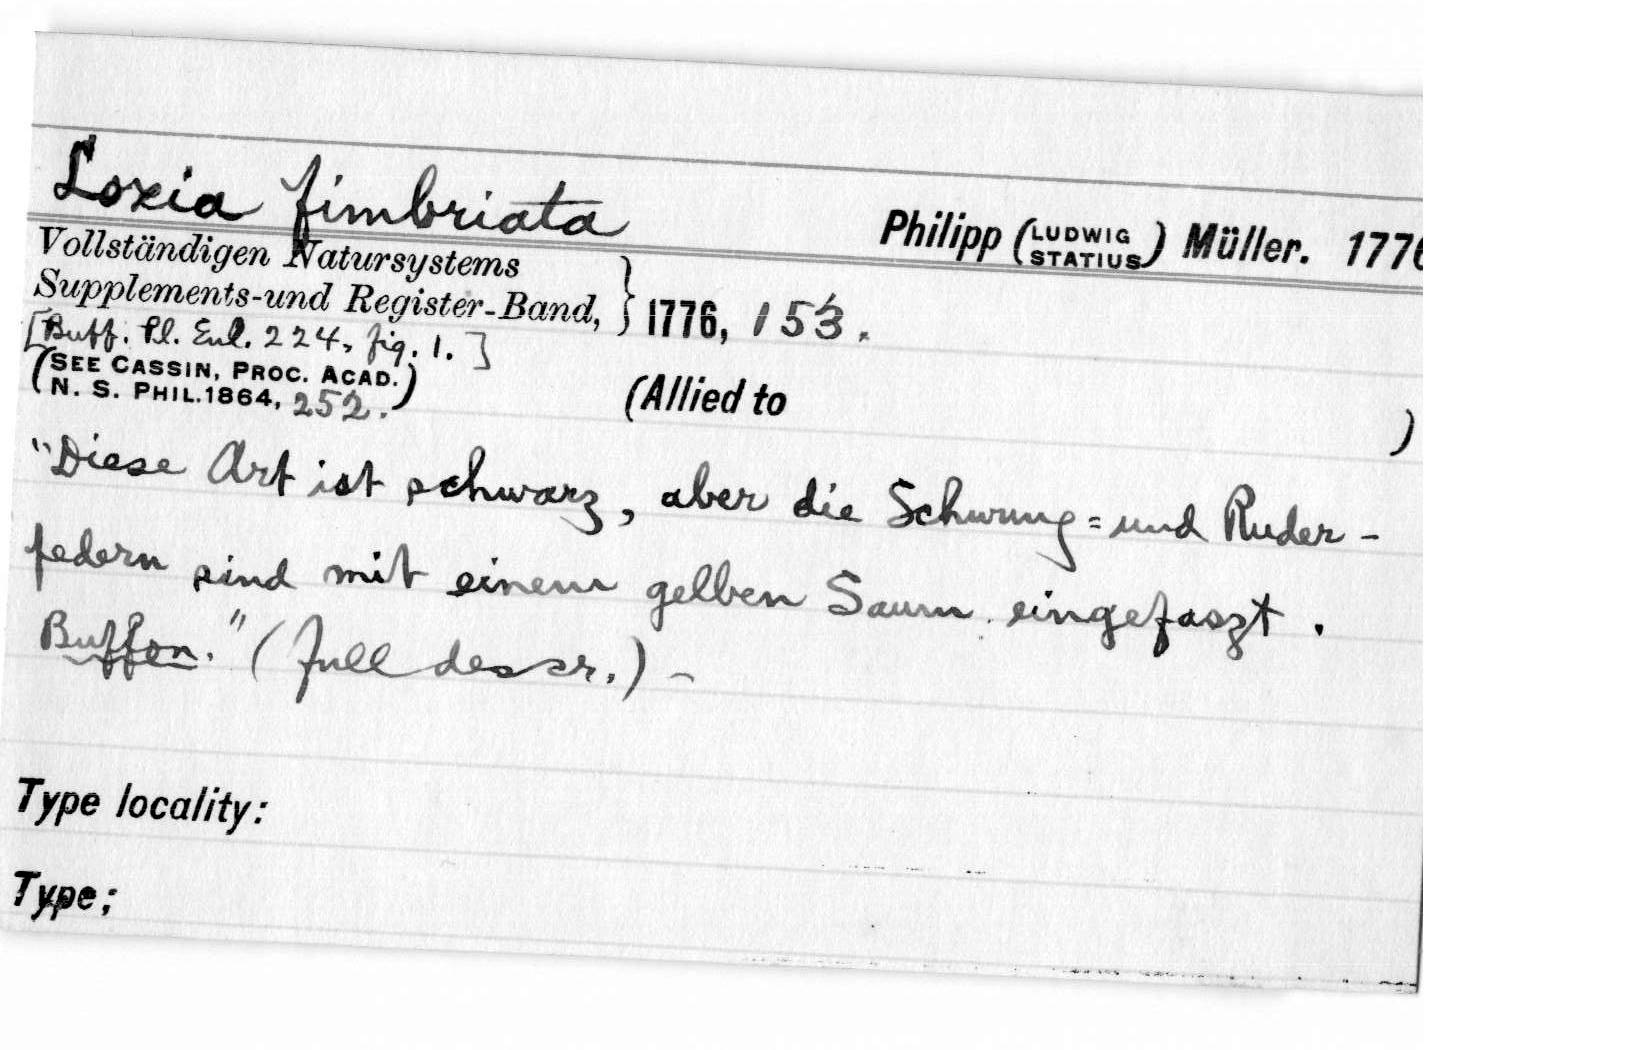 Loxia fimbriata
Philipp (LUDWIG STATIUS) Müller. 1776
Vollständigen Natursystems
Supplements-und Register-Band, } 1776, 153.
[Buff. Pl. Enl. 224, fig. 1.]
(SEE CASSIN, PROC. ACAD.
N. S. PHIL. 1864, 252.)
(Allied to )
"Diese Art ist schwarz, aber die Schwung=und Ruder-
federn sind mit einem gelben Saum eingefaszt.
Buffon." (full descr.) –
Type locality:
Type;